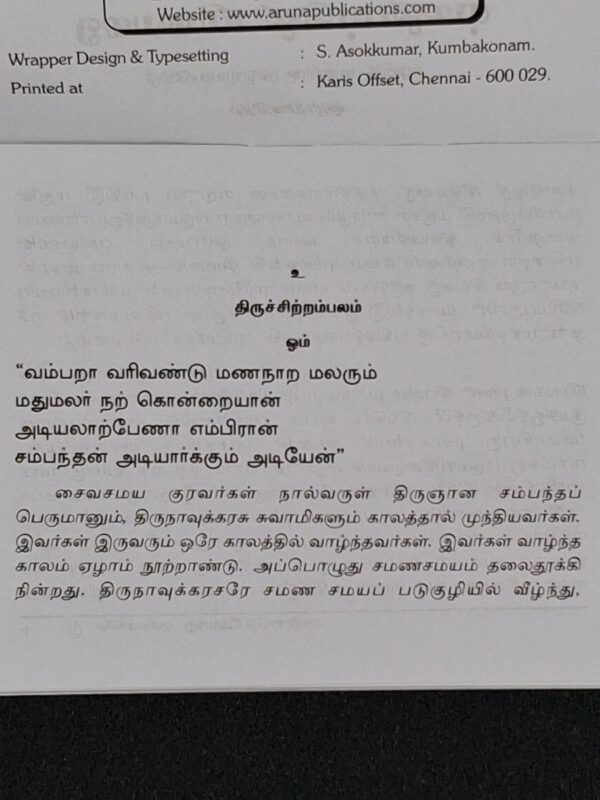 Website : www.arunapublications.com
Wrapper Design & Typesetting : S. Asokkumar, Kumbakonam.
Printed at : Karis Offset, Chennai - 600 029.
உ
திருச்சிற்றம்பலம்
ஓம்
“வம்பறா வரிவண்டு மணநாற மலரும்
மதுமலர் நற் கொன்றையான்
அடியலாற்பேணா எம்பிரான்
சம்பந்தன் அடியார்க்கும் அடியேன்”
சைவசமய குரவர்கள் நால்வருள் திருஞான சம்பந்தப்
பெருமானும், திருநாவுக்கரசு சுவாமிகளும் காலத்தால் முந்தியவர்கள்.
இவர்கள் இருவரும் ஒரே காலத்தில் வாழ்ந்தவர்கள். இவர்கள் வாழ்ந்த
காலம் ஏழாம் நூற்றாண்டு. அப்பொழுது சமணசமயம் தலைதூக்கி
நின்றது. திருநாவுக்கரசரே சமண சமயப் படுகுழியில் வீழ்ந்து,